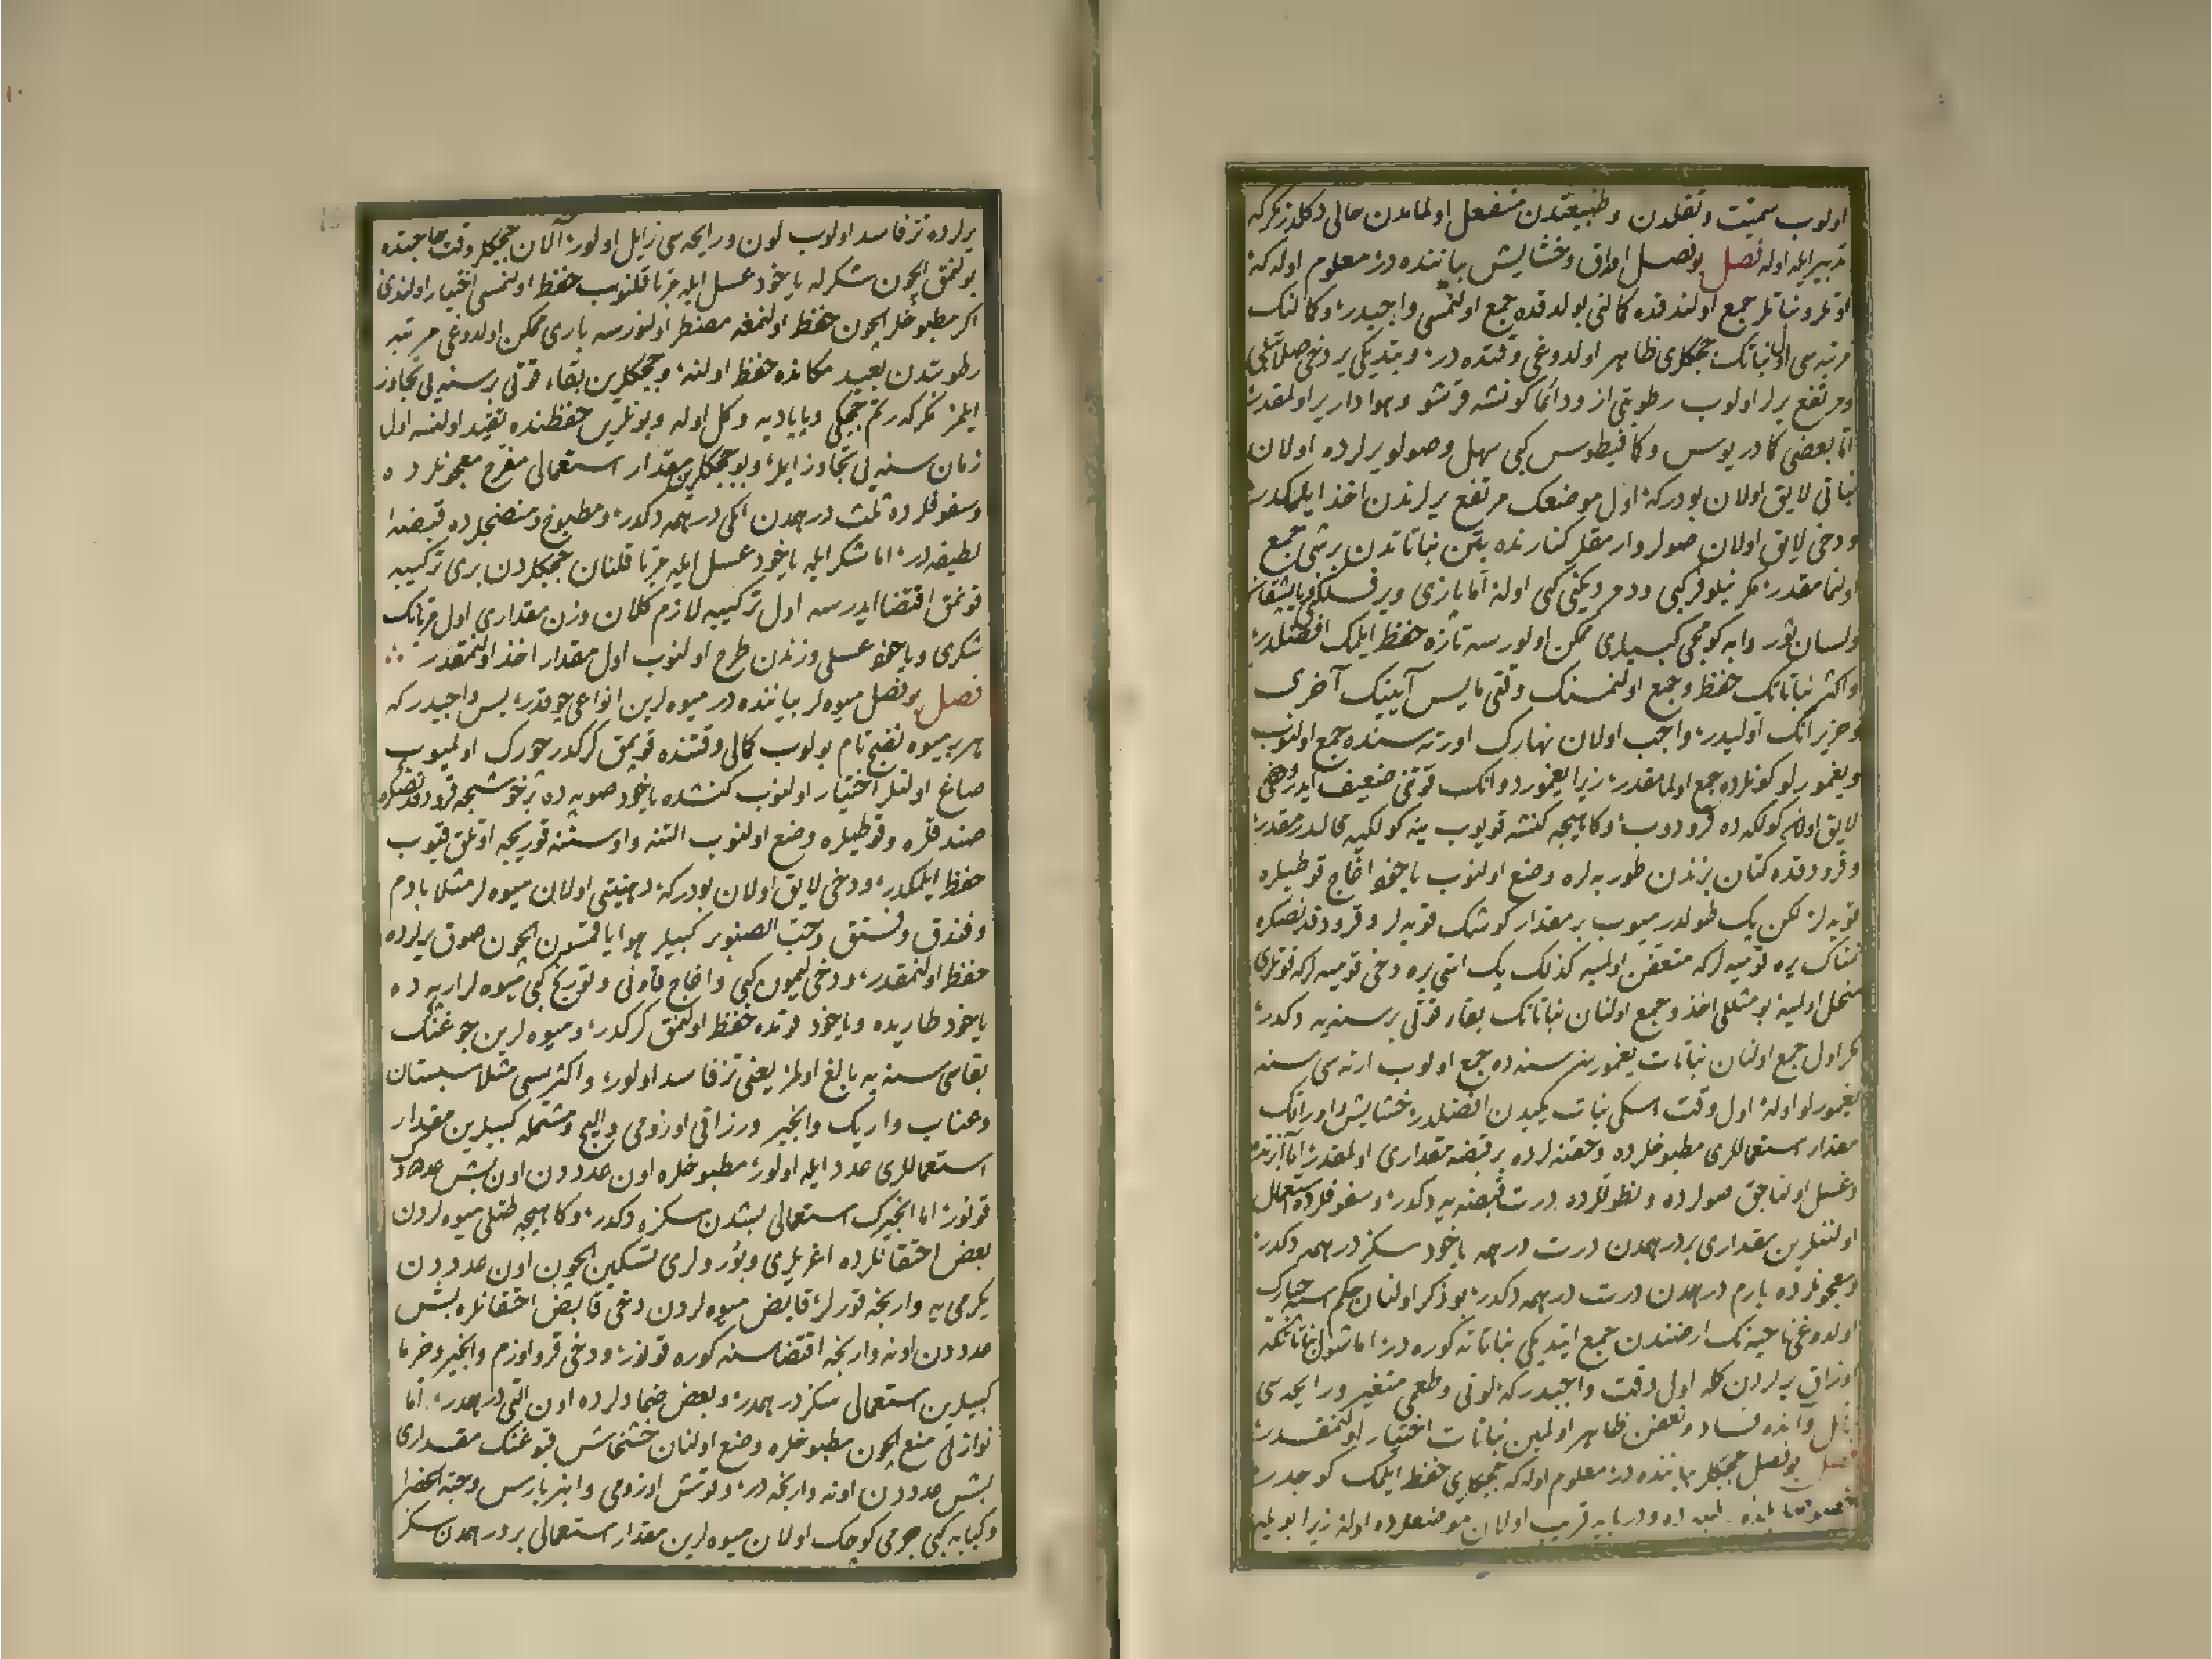 اولوب سميتت وثقلدن وطبيعتدن منفعل اولمامدن خالى دكلدر مكركه
تدبير ايله اوله فصل بو فصل اوراق وحشايش بياننده در معلوم اوله كه
اوتلر ونباتلر جمع اولندقده كمالنى بولدقده جمع اولنمسى واجبدر وكمالنك
مرتبه سى اول نباتك چچكلرى ظاهر اولدوغى وقتده در وبتديكى ير دخى
ومرتفع يرلر اولوب رطوبتى از ودائما كونشه قرشو وهوادار ير اولمقدر
اما بعضى كمادريوس وكمافيطوس كبى سهل وصولو يرلرده اولان
نباتى لايق اولان بودركه اول موضعك مرتفع يرلرندن اخذ ايلمكدر
ودخى لايق اولان صولر وارمقلر كنارنده بتن نباتاتدن برشى جمع
اولنمامقدر مكر نيلوفر كبى ودمر ديكنى كبى اوله اما يازى
ولسان ثور وابه كومجى كبيلرى ممكن اولورسه تازه حفظ ايلمك افضلدر
واكثر نباتاتك حفظ وجمع اولنمسنك وقتى مايس آيينك آخرى
وحزيرانك اوليدر واجب اولان نهارك اورته سنده جمع اولنوب
ويغمورلو كونلرده جمع اولمامقدر زيرا يغمور دوانك قوتنى ضعيف ايدر ودخى
لايق اولان كولكه ده قرودوب وكاهيجه كنشه قويوب ينه كولكيه قالدرمقدر
وقرودقده كتان بزندن طوربه لره وضع اولنوب ياخود اغاج قوطيلره
قويه لر لكن پك طولدرميوب بر مقدار كوشك قويه لر وقرودقدنصكره
نمناك يره قوميه لركه متعفن اولميه كذلك پك اسى يره دخى قوميه لركه قوتلرى
منحل اولميه بو مثللى اخذ وجمع اولنان نباتاتك بقاء قوتى بر سنه يه دكدر
مكر اول جمع اولنان نباتات يغمورسز سنه ده جمع اولوب ارته سى سنه
يغمورلو اوله اول وقت اسكى نبات يكيدن افضلدر حشايش واوراقك
مقدار استعماللرى مطبوخلرده وحقنه لرده بر قبضه مقدارى اولمقدر اما ابزنده
وغسل اولنه جق صولرده ونطوللرده درت قبضه يه دكدر وسفوفلرده استعمال
اولننلرين مقدارى بر درهمدن درت درهمه ياخود سكز درهمه دكدر
ومعجونلرده يارم درهمدن درت درهمه دكدر بو ذكر اولنان حكم
اولدوغى ناحيه نك ارضندن جمع ايتديكى نباتاته كوره در اما شول نباتاتكه
اوزاق يرلردن كله اول وقت واجبدركه لونى وطعمى متغير ورايحه سى
زايل وانده فساد وتعفن ظاهر اولمين نباتات اختيار اولنمقدر
فصل بو فصل چچكلر بياننده در معلوم اوله كه چچكلرى حفظ ايلمك كوجدر
زيرا بو
يرلرده تز فاسد اولوب لون ورايحه سى زايل اولور آلان چچكلر وقت حاجتده
بولنمق ايچون شكرله ياخود عسل ايله مربا قلنوب حفظ اولنمسى اختيار اولندى
اكر مطبوخلر ايچون حفظ اولنمغه مضطر اولنورسه بارى ممكن اولدوغى مرتبه
رطوبتدن بعيد مكانده حفظ اولنه وچچكلرين بقاء قوتى بر سنه يى تجاوز
ايلمز مكركه رتم چچكى وپاپاديه وكل اوله وبونلرين حفظنده تقيد اولنسه اول
زمان سنه يى تجاوز ايلر وبو چچكلرين مقدار استعمالى مفرح معجونلرده
وسفوفلرده ثلث درهمدن ايكى درهمه دكدر ومطبوخ ومنضجلرده قبضه
لطيفه در اما شكر ايله ياخود عسل ايله مربا قلنان چچكلردن برى تركيبه
قونمق اقتضا ايدرسه اول تركيبه لازم كلان وزن مقدارى اول مربانك
شكرى وياخود عسلى وزندن طرح اولنوب اول مقدار اخذ اولنمقدر
فصل بو فصل ميوه لر بياننده در ميوه لرين انواعى چوقدر پس واجبدركه
هر بر ميوه نضج تام بولوب كمالى وقتنده قوپمق كركدر چورك اولميوب
صاغ اولنلر اختيار اولنوب كنشده ياخود صوبه ده بر خوشيجه قرودقدنصكره
صندقلره وقوطيلره وضع اولنوب التنه واوستنه قوريجه اوتلق قيوب
حفظ ايلمكدر ودخى لايق اولان بودركه دهنيتى اولان ميوه لر مثلا بادم
وفندق وفستق وحب الصنوبر كبيلر هوايا قمسون ايچون صوق يرلرده
حفظ اولنمقدر ودخى ليمون كبى واغاج قاونى وتورنج كبى ميوه لر اريه ده
ياخود طاريده وياخود اوتده حفظ اولنمق كركدر وميوه لرين چوغنك
بقاسى سنه يه بالغ اولمز يعنى تز فاسد اولور واكثريسى مثلا سبستان
وعناب واريك وانجير ورزاقى اوزومى ومشمله كبيلرين مقدار
استعماللرى عدد ايله اولور مطبوخلره اون عددن اون بش عدده دك
قونور اما انجيرك استعمالى بشدن سكزه دكدر وكاهيجه طتلى ميوه لردن
بعض احتقانلرده اغريلرى وبورولرى تسكين ايچون اون عددن
يكرمى يه وارنجه قورلر قابض ميوه لردن دخى قابض احتقانلره بش
عددن اونه وارنجه اقتضاسنه كوره قونور ودخى قرو اوزم وانجير وخرما
كبيلرين استعمالى سكز درهمدر وبعض ضمادلرده اون التى درهمدر اما
نوازلى منع ايچون مطبوخلره وضع اولنان خشخاش قبوغنك مقدارى
بش عددن اونه وارنجه در وقوش اوزومى وانبربارس وحبة الخضرا
وكبابه كبى جرمى كوچك اولان ميوه لرين مقدار استعمالى بر درهمدن سكز